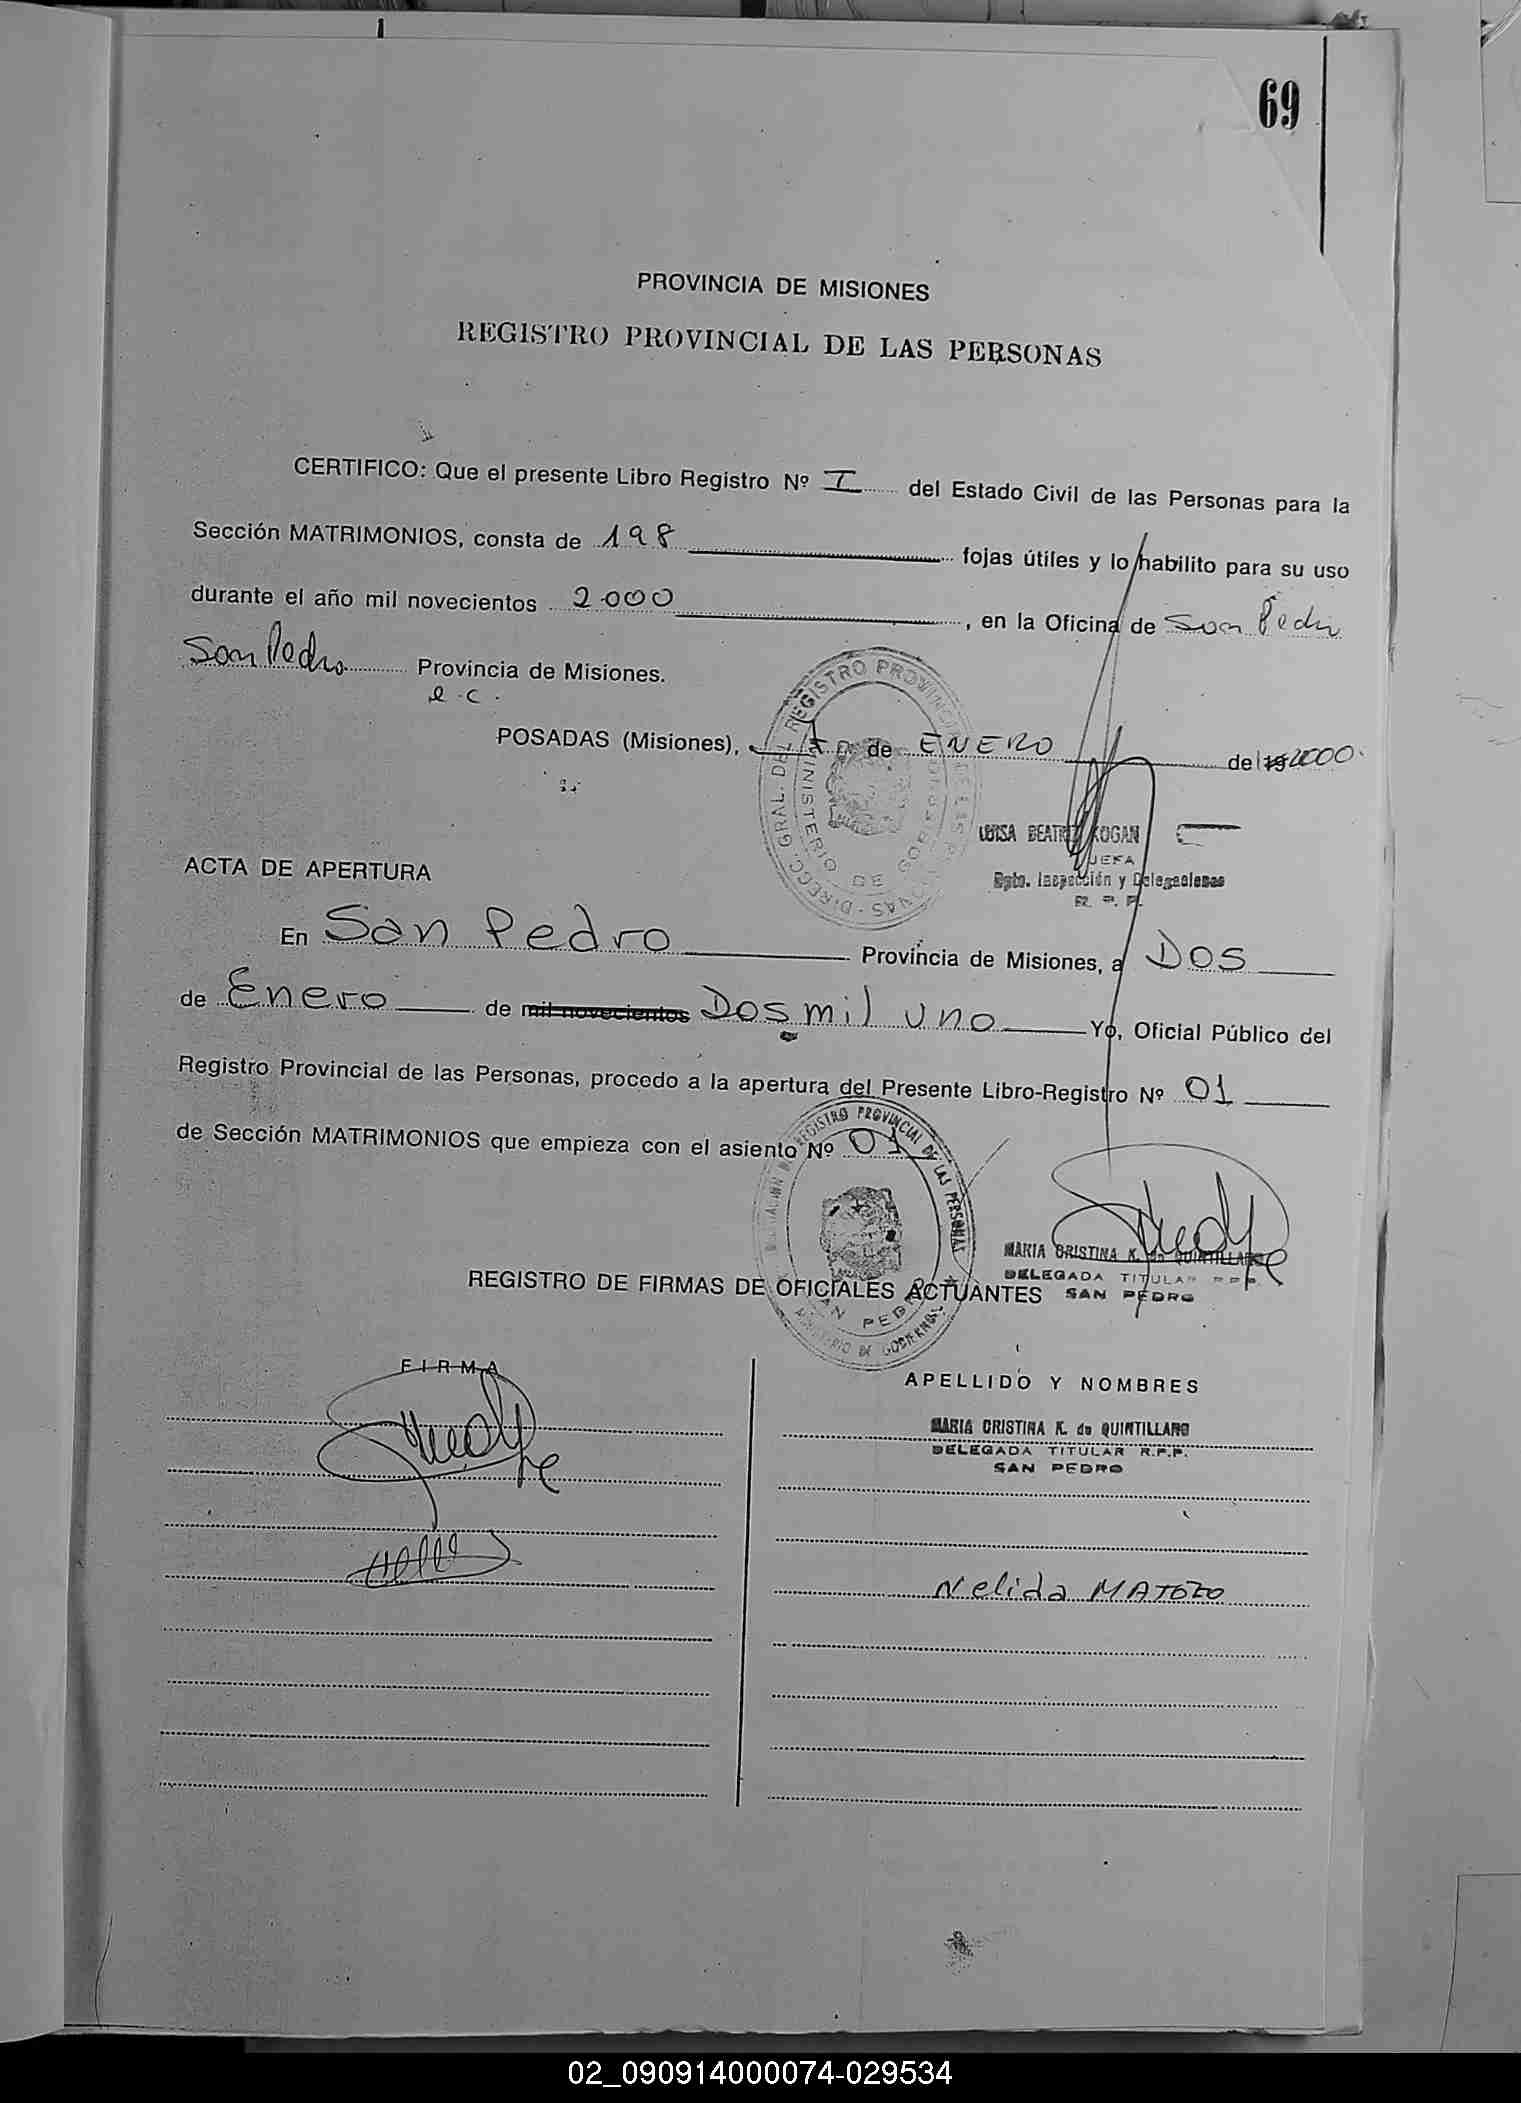 69
PROVINCIA DE MISIONES
REGISTRO PROVINCIAL DE LAS PERSONAS
CERTIFICO: Que el presente Libro Registro Nº I del Estado Civil de las Personas para la
Sección MATRIMONIOS, consta de 198 fojas útiles y lo habilito para su uso
durante el año mil novecientos 2.000, en la Oficina de San Pedro
San Pedro Provincia de Misiones.
e.c.
POSADAS (Misiones), de ENERO del 19 2000.
LUISA BEATRIZ KOGAN
JEFA
Dpto. Inspección y Delegaciones
R. P. P.
DIRECC. GRAL. DEL REGISTRO PROVINCIAL DE LAS PERSONAS
MINISTERIO DE GOBIERNO
ACTA DE APERTURA
En San Pedro Provincia de Misiones, a DOS
de Enero de mil novecientos Dos mil uno Yo, Oficial Público del
Registro Provincial de las Personas, procedo a la apertura del Presente Libro-Registro Nº 01
de Sección MATRIMONIOS que empieza con el asiento Nº 01
REGISTRO PROVINCIAL DE LAS PERSONAS
SAN PEDRO
MINISTERIO DE GOBIERNO
MARIA CRISTINA K. de QUINTILLANO
DELEGADA TITULAR R.P.P.
SAN PEDRO
REGISTRO DE FIRMAS DE OFICIALES ACTUANTES
FIRMA
APELLIDO Y NOMBRES
MARIA CRISTINA K. de QUINTILLANO
DELEGADA TITULAR R.P.P.
SAN PEDRO
Nelida MATOZO
02_090914000074-029534